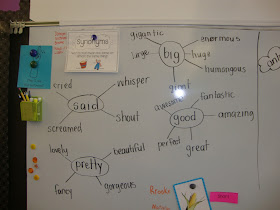 Synonyms
gigantic
enormous
large
big
huge
humongous
giant
cried
whisper
said
screamed
shout
awesome
fantastic
good
amazing
perfect
great
lovely
beautiful
pretty
fancy
gorgeous